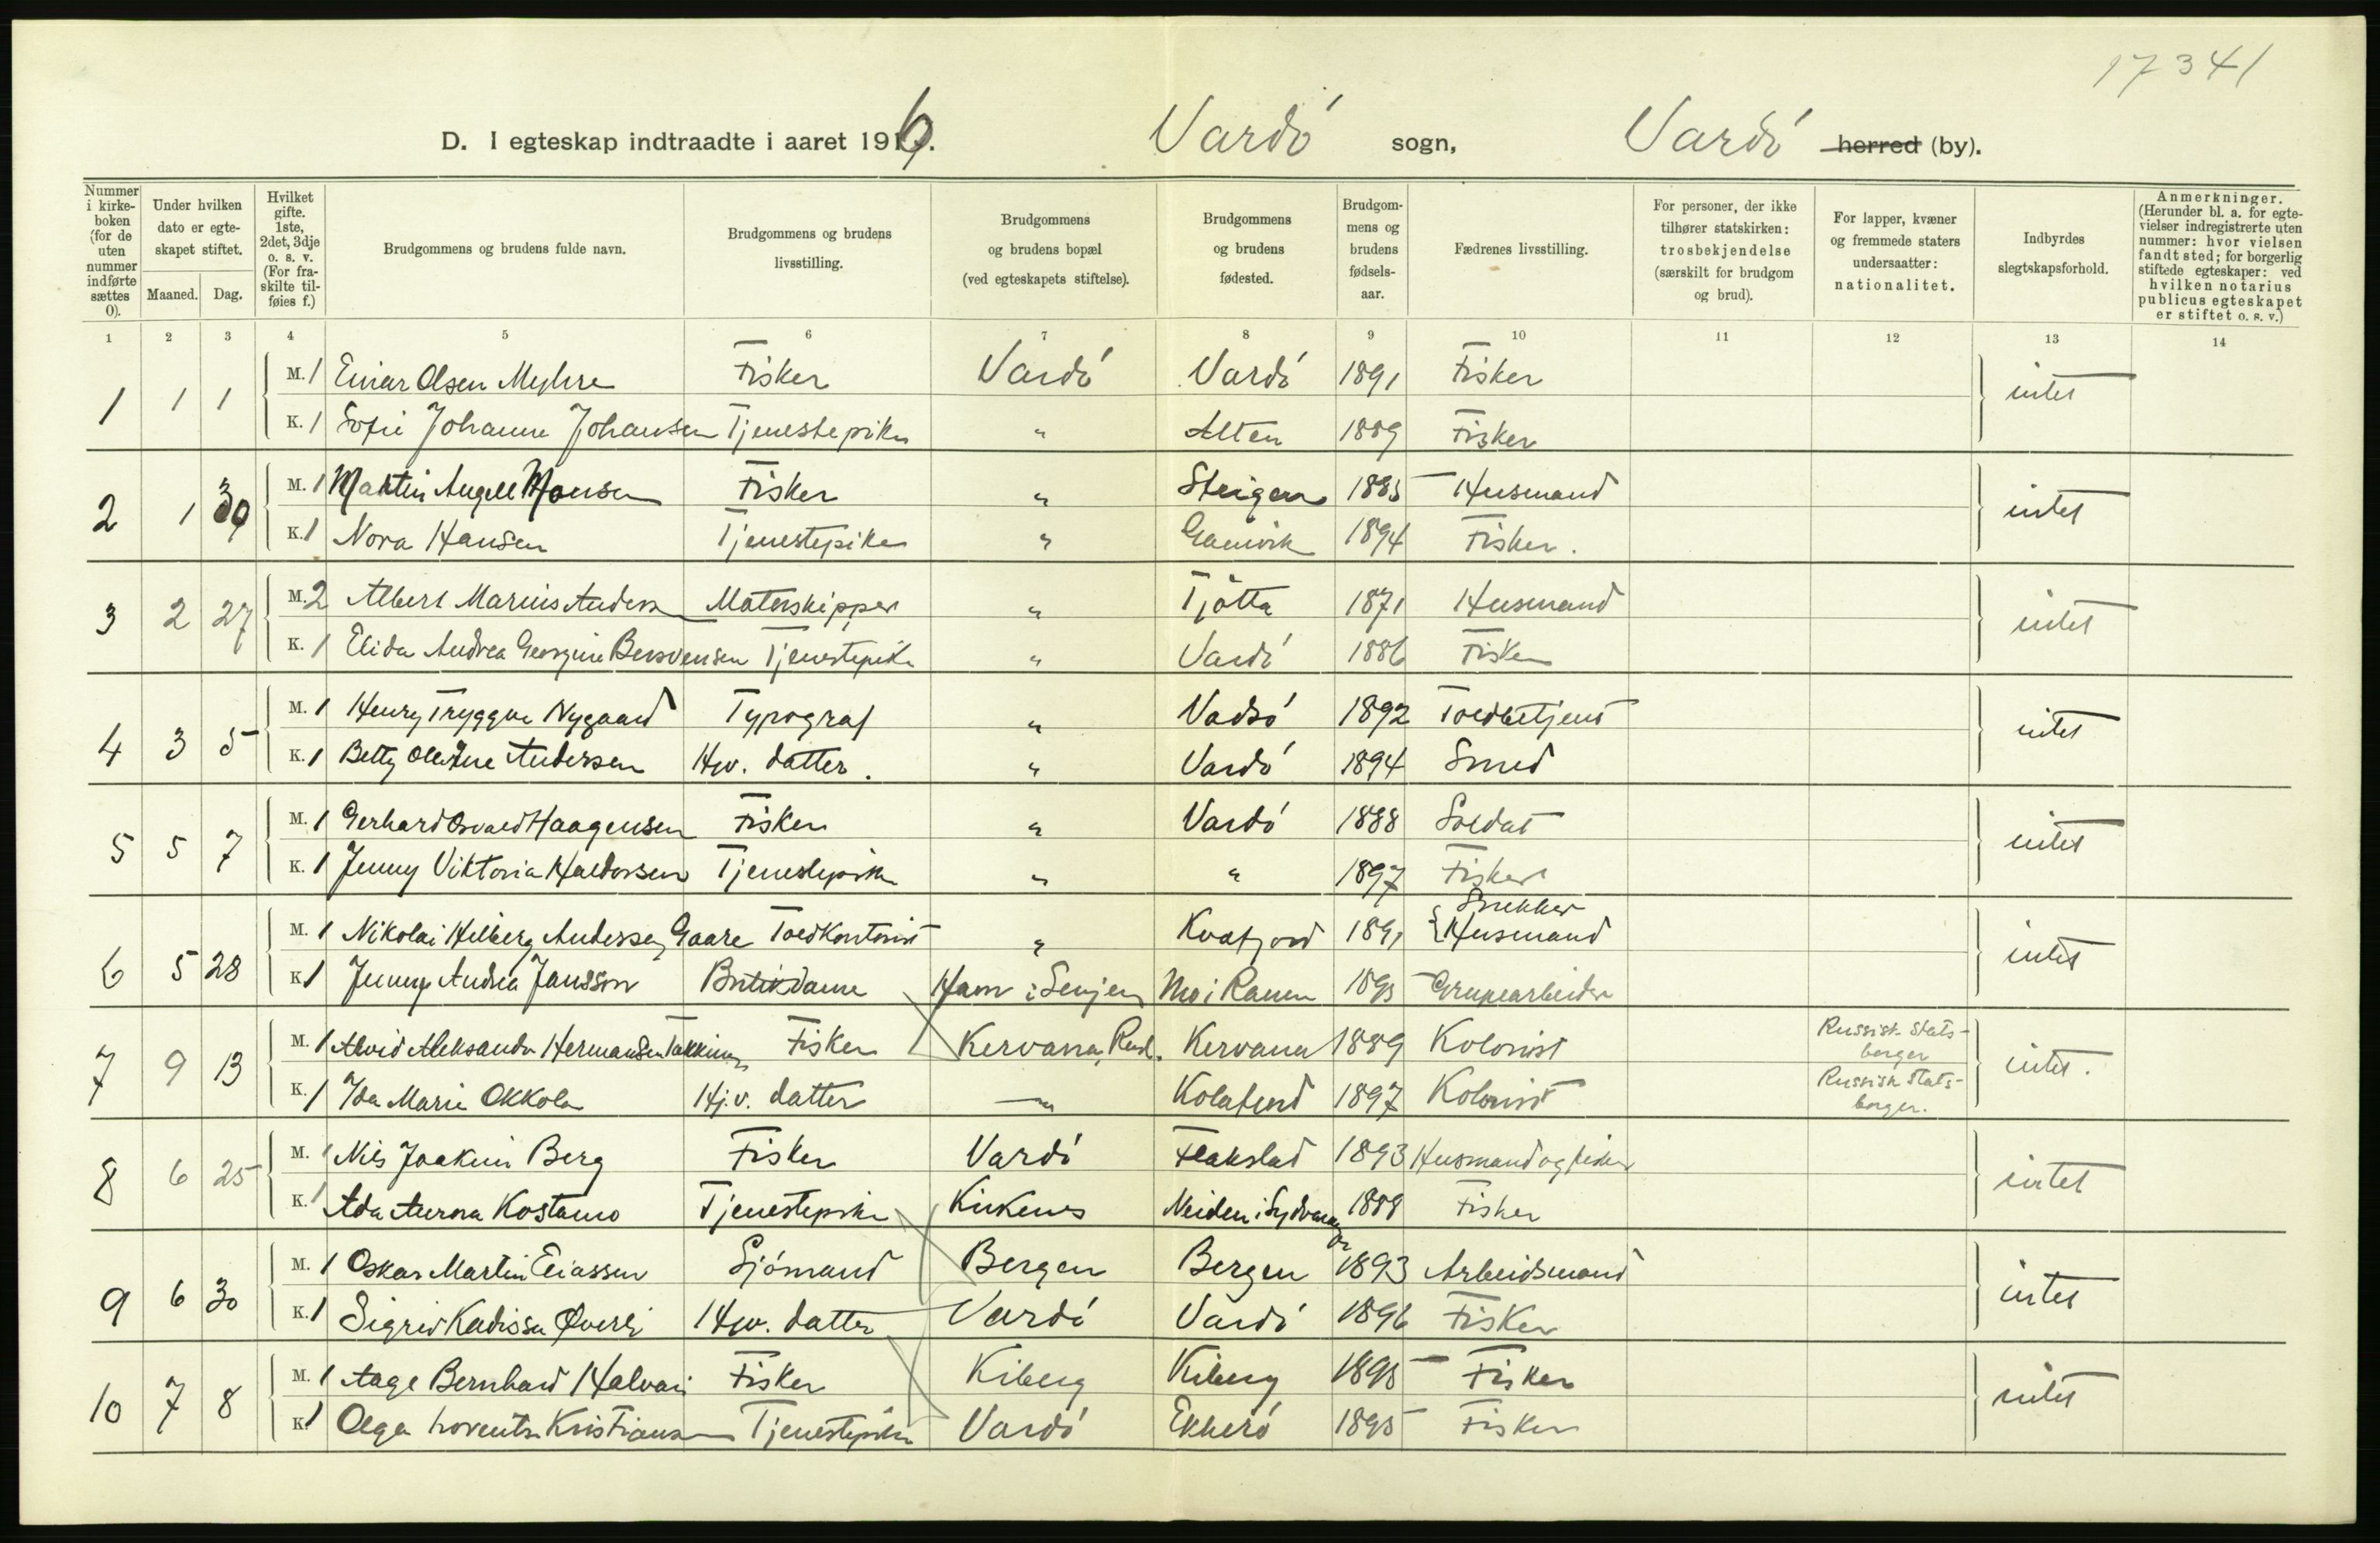 17341
D. I egteskap indtraadte i aaret 1916. Vardö sogn, Vardö herred (by).
Nummer i kirkeboken (for de uten nummer indførte sættes 0).
Under hvilken dato er egteskapet stiftet.
Maaned. Dag.
Hvilket gifte. 1ste, 2det, 3dje o. s. v. (For fraskilte tilføies f.)
Brudgommens og brudens fulde navn.
Brudgommens og brudens livsstilling.
Brudgommens og brudens bopæl (ved egteskapets stiftelse).
Brudgommens og brudens fødested.
Brudgommens og brudens fødselsaar.
Fædrenes livsstilling.
For personer, der ikke tilhører statskirken: trosbekjendelse (særskilt for brudgom og brud).
For lapper, kvæner og fremmede staters undersaatter: nationalitet.
Indbyrdes slegtskapsforhold.
Anmerkninger. (Herunder bl. a. for egtevielser indregistrerte uten nummer: hvor vielsen fandt sted; for borgerlig stiftede egteskaper: ved hvilken notarius publicus egteskapet er stiftet o. s. v.)
1 2 3 4 5 6 7 8 9 10 11 12 13 14
1 1 1 M. 1 Einar Olsen Myhre Fisker Vardö Vardö 1891 Fisker intet
K. 1 Sofie Johanne Johansen Tjenestepike " Alten 1889 Fisker
2 1 30 M. 1 Martin Angell Monsen Fisker " Steigen 1885 Husmand intet
K. 1 Nora Hansen Tjenestepike " Gamvik 1894 Fisker.
3 2 27 M. 2 Albert Marius Andersen Materskipper " Tjötta 1871 Husmand intet
K. 1 Elida Andrea Georgine Bersvensen Tjenestepike " Vardö 1886 Fisker
4 3 5 M. 1 Henry Tryggve Nygaard Typograf " Vadsö 1892 Toldbetjent intet
K. 1 Betty Oletine Andersen Hjv. datter. " Vardö 1894 Smed
5 5 7 M. 1 Gerhard Osvald Haagensen Fisker " Vardö 1888 Soldat intet
K. 1 Jenny Viktoria Haldorsen Tjenestepike " " 1897 Fisker
6 5 28 M. 1 Nikolai Hilberg Andersen Gaare Toldkontorist " Kvæfjord 1891 { Snekker Husmand intet
K. 1 Jenny Andrea Jansson Butikdame Havn i Senjen Mo i Ranen 1895 Grupearbeider
7 9 13 M. 1 Alvid Aleksander Hermansen Takkinen Fisker Kervana, Rusl. Kervana 1889 Kolonist Russisk Statsborger intet.
K. 1 Ida Marie Okkola Hj.v. datter " Kolafjord 1897 Kolonist Russisk Statsborger.
8 6 25 M. 1 Nils Joakim Berg Fisker Vardö Flakstad 1893 Husmand og fisker intet
K. 1 Ada Aurora Kostamo Tjenestepike Kirkenes Neiden i Sydvaranger 1888 Fisker
9 6 30 M. 1 Oskar Martin Eliassen Sjömand Bergen Bergen 1893 Arbeidsmand intet
K. 1 Sigrid Kadissa Øverli Hjv. datter Vardö Vardö 1896 Fisker
10 7 8 M. 1 Aage Bernhard Halvari Fisker Kiberg Kiberg 1895 Fisker intet
K. 1 Olga Lorentse Kristiansen Tjenestepike Vardö Ekkerö 1895 Fisker